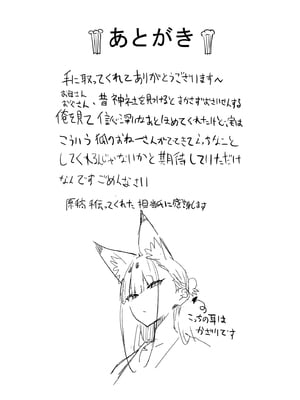 あとがき
手に取ってくれてありがとうございます〜
お母さん
おとさん、昔神社を見つけるとかさずおさいせんする
俺を見て信心深いなあとほめてくれたけど、実は
こういう狐のおねーさんがでてきてえっちなこと
してくれるんじゃないかと期待していただけ
なんですごめんなさい
原稿手伝ってくれた担当氏に感謝します
こっちの耳は
かざりです